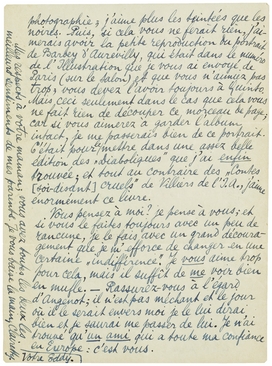 photographie; j'aime plus les teintées que les
noires. Puis, si cela vous ne ferait rien, j'ai-
merais avoir la petite reproduction du portrait
de Barbey d'Aurevilly, qui était dans le numéro
de l'Illustration que je vous ai envoyé de
Paris (sur le Salon) et que vous n'aimez pas
trop; vous devez l'avoir toujours à Quinto.
Mais, ceci seulement dans le cas que cela vous
ne fait rien de découper ce morceau de page,
car si vous aimerez à garder l'album
intact, je me passerais bien de ce portrait.
C'était pour mettre dans une assez belle
édition des «Diaboliques» que j'ai enfin
trouvée; et tout au contraire des «Contes
[soi-disant] cruels» de Villiers de l'I.A., j'aime
énormément ce livre.
Vous pensez à moi? Je pense à vous; et
si vous le faites toujours avec un peu de
rancune, je le fais avec un grand découra-
gement que je m'efforce de changer en une
certaine «indifférence». Je vous aime trop
pour cela, mais il suffit de me voir bien
en mufle. — Rassurez-vous à l'égard
d'Angenot; il n'est pas méchant et le jour
où il le serait envers moi je le lui dirai
bien et je saurai me passer de lui. Je n'ai
trouvé qu'un ami qui a toute ma confiance
en Europe: c'est vous.
Votre Eddy.
respect à votre maman; vous avez toutes les deux les
meilleurs sentiments de mes parents. Je vous baise la main,